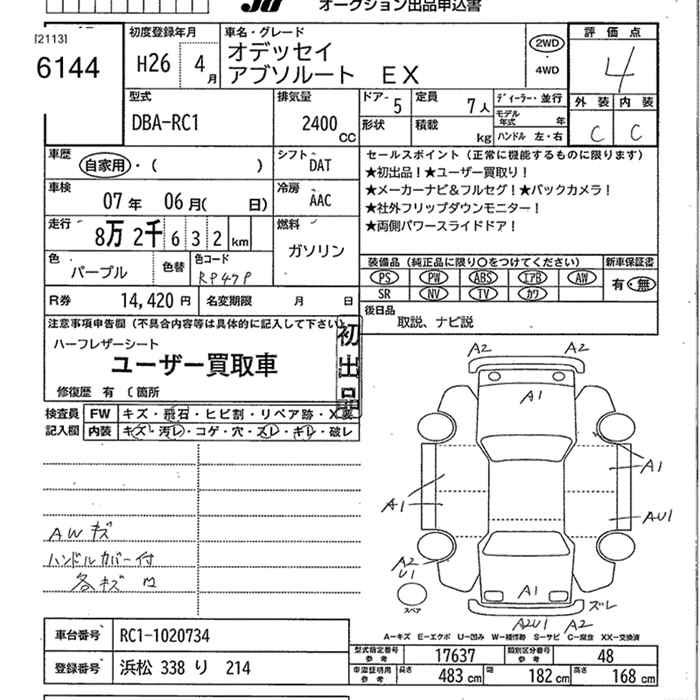 オークション出品申込書
[2113]
6144
初度登録年月
H26 4月
車名・グレード
オデッセイ
アブソルート EX
2WD
・4WD
評価点
4
外装 内装
C C
型式
DBA-RC1
排気量
2400cc
ドアー 5
形状
定員 7人
積載 kg
ディーラー・並行
モデル年式 年
ハンドル 左・右
車歴
自家用・( )
シフト DAT
車検
07年 06月( 日)
冷房 AAC
走行
8万2千632km
燃料
ガソリン
色
パープル
色替
色コード
RP47P
R券 14,420円
名変期限 月 日
セールスポイント(正常に機能するものに限ります)
★初出品!★ユーザー買取り!
★メーカーナビ&フルセグ!★バックカメラ!
★社外フリップダウンモニター!
★両側パワースライドドア!
装備品(純正品に限り○をつけてください)
新車保証書
PS PW ABS エアB AW
SR NV TV カワ
有・無
後日品
取説、ナビ説
注意事項申告欄(不具合内容等は具体的に記入して下さい
ハーフレザーシート
ユーザー買取車
初出品
修復歴 有 〔箇所
検査員
記入欄
FW キズ・飛石・ヒビ割・リペア跡・X
内装 キズ・汚レ・コゲ・穴・スレ・キレ・破レ
AWキズ
ハンドルカバー付
各キズ
A2 A2
A1
A1
A1
AU1
A2
U1
A1
ズレ
A2U1 A2
スペア
A-キズ E-エクボ U-凹み W-補修跡 S-サビ C-腐食 XX-交換済
車台番号 RC1-1020734
登録番号 浜松 338 り 214
型式指定番号
参考
17637
類別区分番号
参考
48
車庫証明用
参考
長さ 483cm
幅 182cm
高さ 168cm